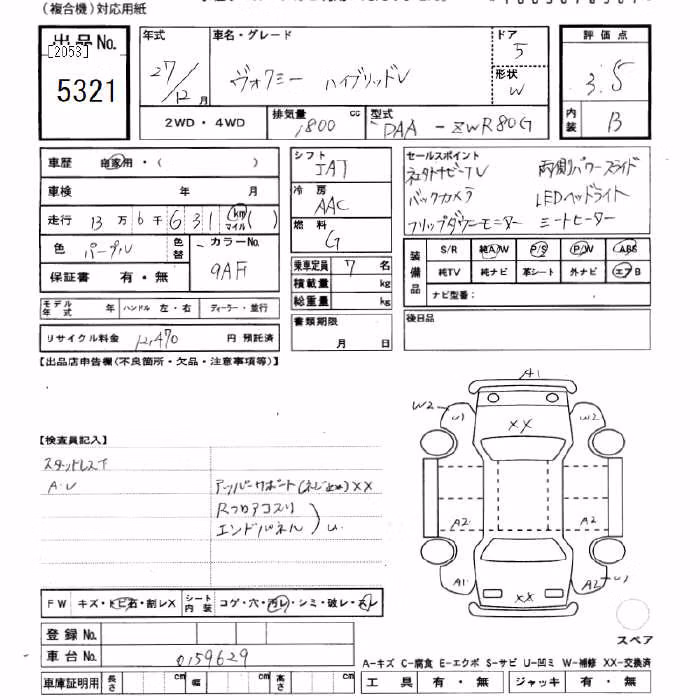 (複合機)対応用紙
出品No.
[2053]
5321
年式 27/12月
車名・グレード ヴォクシー ハイブリッドV
ドア 5
形状 W
評価点 3.5
内装 B
2WD・4WD
排気量 1800 cc
型式 DAA-ZWR80G
車歴 自家用・( )
車検 年 月
走行 13万6千631 km マイル ( )
色 パープル 色替 カラーNo. 9AF
保証書 有・無
モデル年式 年 ハンドル 左・右 ディーラー・並行
リサイクル料金 12,470 円 預託済
シフト IAT
冷房 AAC
燃料 G
乗車定員 7 名
積載量 kg
総重量 kg
書類期限 月 日
セールスポイント
両側パワースライド
バックカメラ LEDヘッドライト
フリップダウンモニター シートヒーター
装備品 S/R 純A/W P/S P/W ABS
純TV 純ナビ 革シート 外ナビ エアB
ナビ型番:
後日品
【出品店申告欄(不良箇所・欠品・注意事項等)】
【検査員記入】
スタッドレス下
A.U
アッパーサポート(ネジ止め)XX
Rフロアコスリ
エンドパネル
U
A1
W2 W1 XX W2
A2 A2
A1 XX A2 U1
スペア
FW キズ・トビ石・割レX シート内装 コゲ・穴・汚レ・シミ・破レ・スレ
登録No.
車台No. 0159629
車庫証明用 長さ cm 幅 cm 高さ cm
A-キズ C-腐食 E-エクボ S-サビ U-凹ミ W-補修 XX-交換済
工具 有・無 ジャッキ 有・無